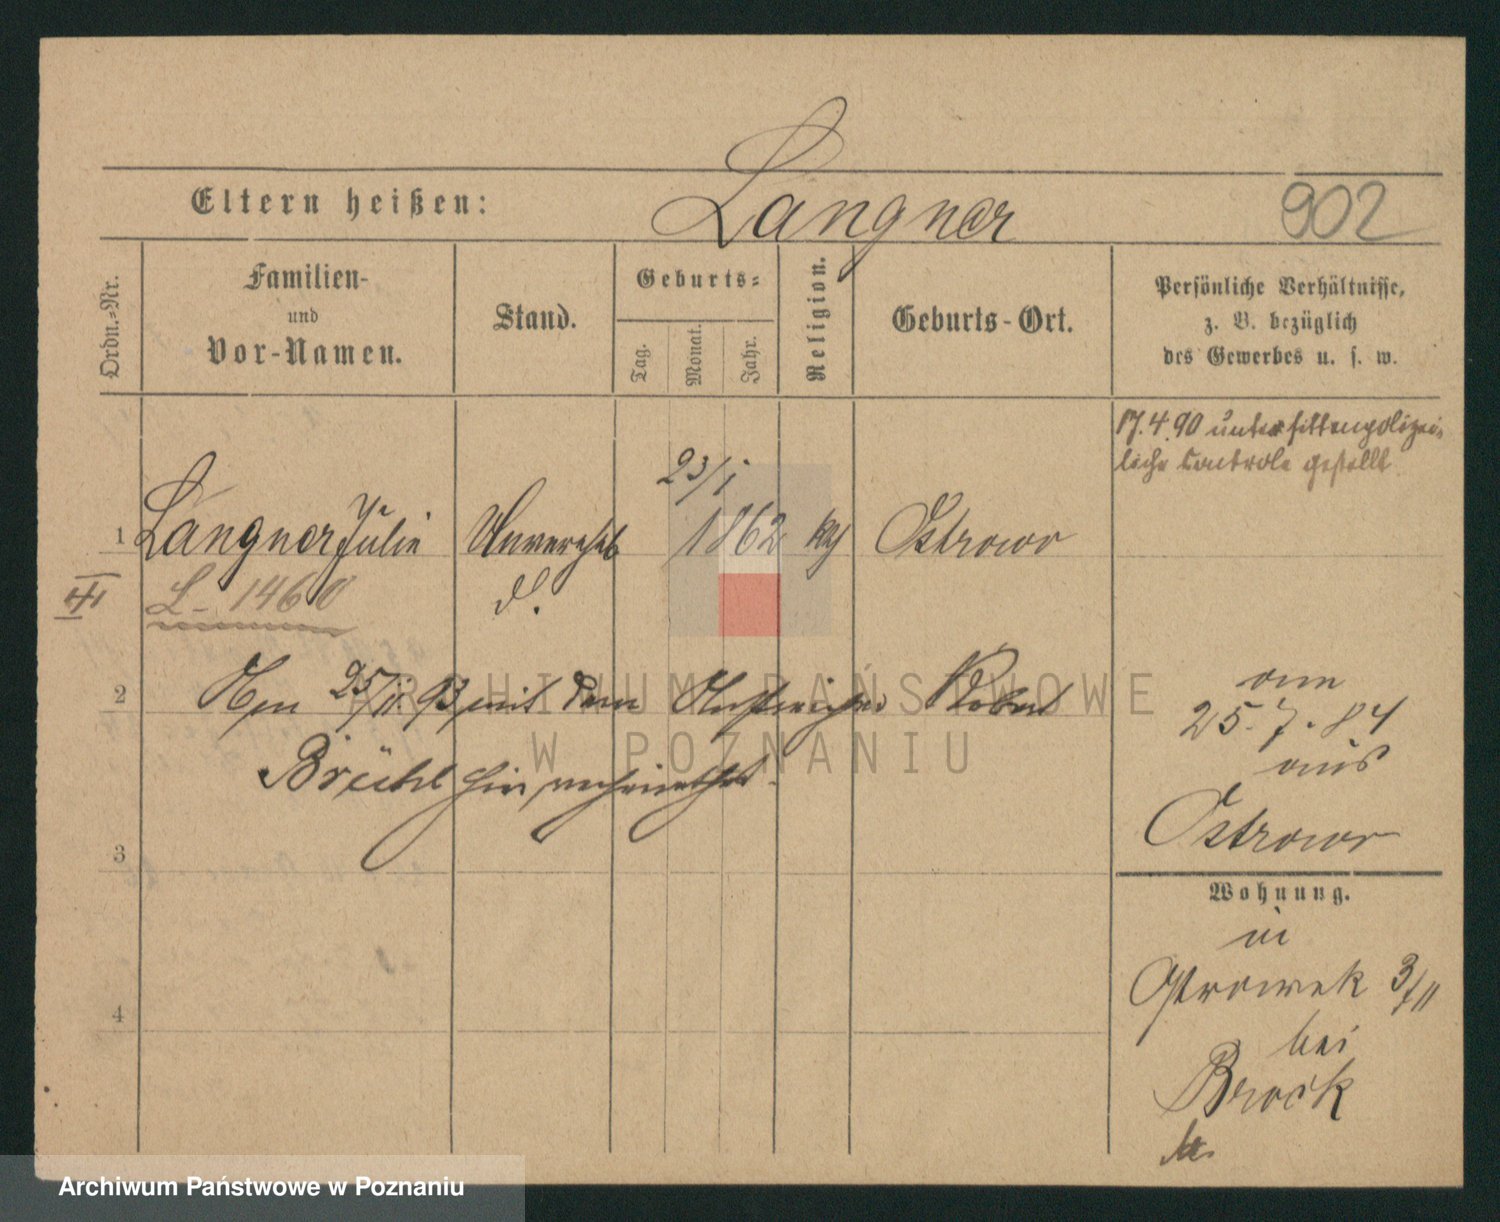 Langner
Eltern heißen:
902
Ordn.=Nr.
Familien-
und
Vor-Namen.
Stand.
Geburts=
Tag.
Monat.
Jahr.
Religion.
Geburts-Ort.
Persönliche Verhältnisse,
z. B. bezüglich
des Gewerbes u. s. w.
17.4.90 unter sittenpolizei-
liche Controle gestellt
23/1
1 Langner Julie Unverehel 1862 Ostrowo
L- 1460
2 25/11.93 mit dem Robert
am
25.7.84
aus
Brückl
Ostrowo
3
Wohnung.
in
Ostrowek 3/11
4
bei
Brock
ARCHIWUM PAŃSTWOWE
W POZNANIU
Archiwum Państwowe w Poznaniu